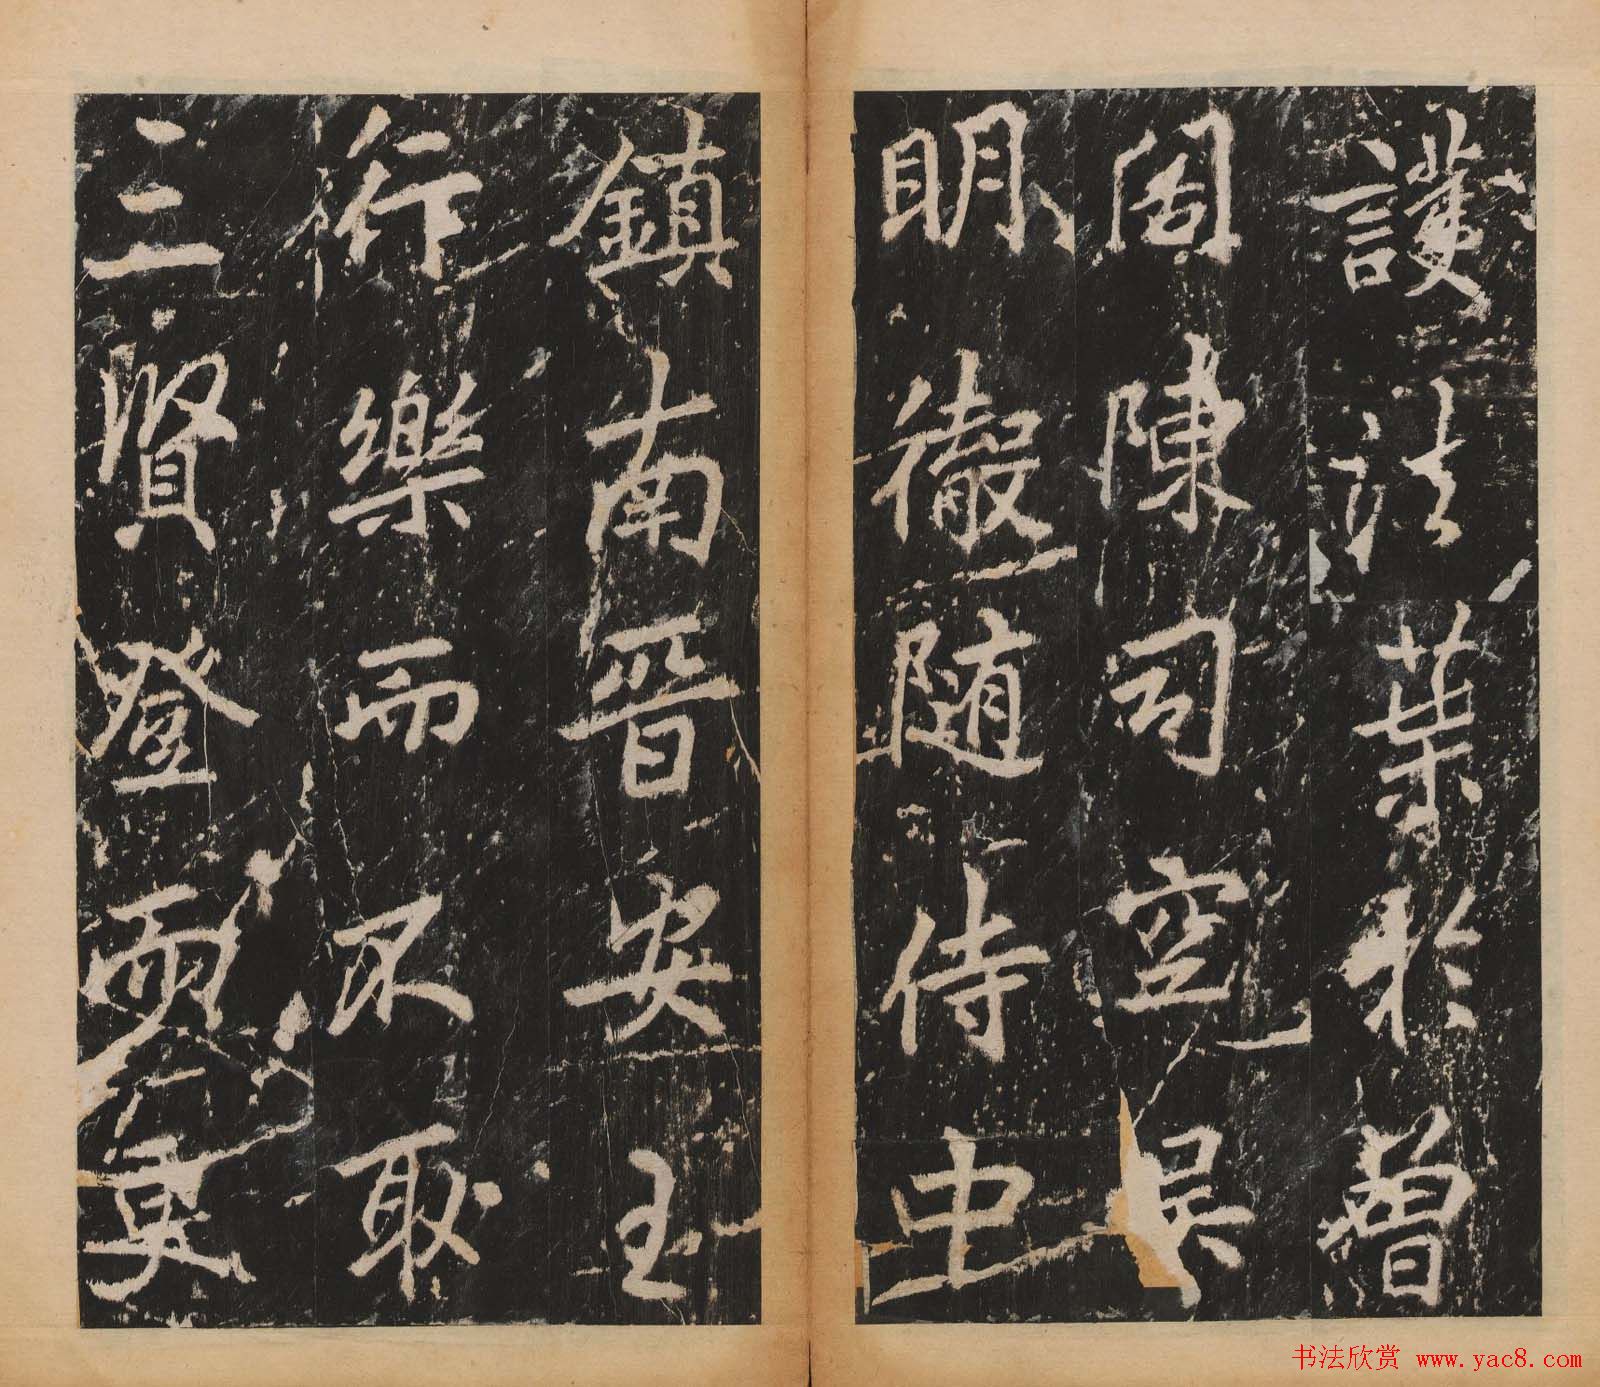 護法業於曾
岡陳司空吳
明徹随侍中
鎮南晉安王
行樂而不取
三賢登而更
书法欣赏 www.yac8.com